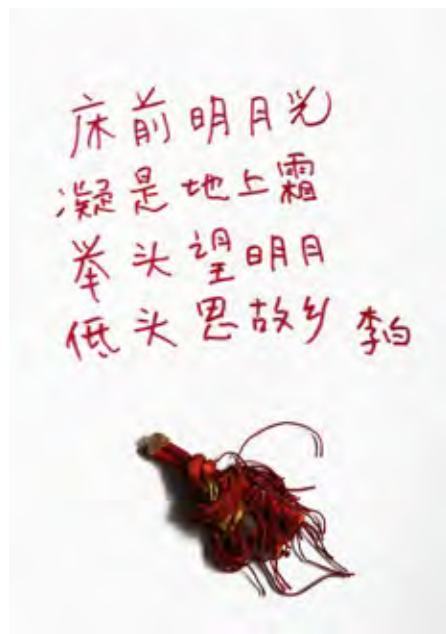 床前明月光
凝是地上霜
举头望明月
低头思故乡 李白